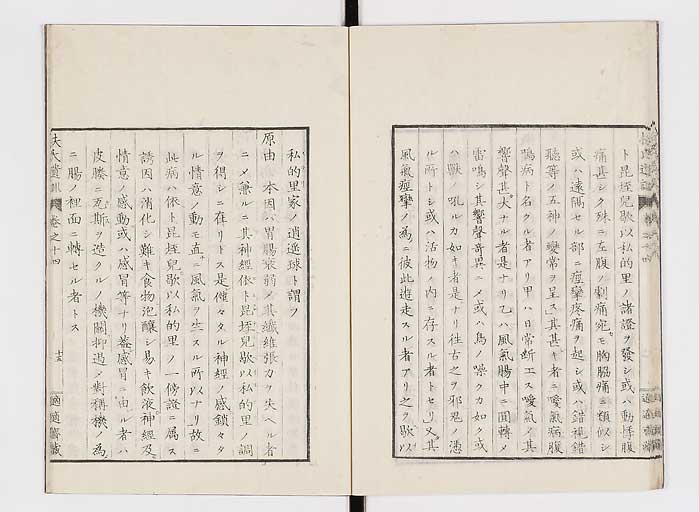 ト昆垤兒歇以私的里ノ諸證ヲ發シ或ハ動悸腹
痛甚シク殊ニ左腹ノ劇痛宛モ胸脇痛ニ類似シ
或ハ遠隔セル部ニ痙攣疼痛ヲ起シ或ハ錯視錯
聽等ノ五神ノ變常ヲ呈ス其甚キ者ニ噯氣病腹
鳴病ト名クル者アリ甲ハ日常斷エス噯氣ノ其
響聲甚大ナル者是ナリ乙ハ風氣腸中ニ圓轉メ
雷鳴シ其響聲奇異ニメ或ハ鳥ノ噪クカ如ク或
ハ獸ノ吼ルカ如キ者是ナリ徃古之ヲ邪鬼ノ憑
ル所トシ或ハ活物ノ内ニ存スル者トセリ又其
風氣痙攣ノ為ニ彼此遊走スル者アリ之ヲ歇以
私的里家ノ逍遙球ト謂フ
原由 本因ハ胃腸衰弱メ其纖維張力ヲ失ヘル者
ニメ兼ルニ其神經依ト昆垤兒歇以私的里ノ調
ヲ得シニ在リトス是僅々タル神經ノ感觸々タ
ル情意ノ動モ直ニ風氣ヲ生スル所以ナリ故ニ
此病ハ依ト昆垤兒歇以私的里ノ一傍證ニ属ス
誘因ハ消化シ難キ食物泡釀シ易キ飲液神經及
情意ノ感動或ハ感冒等ナリ蓋感冒ニ由ル者ハ
皮膚ニ瓦斯ヲ造クルノ機關抑遏メ對稱機ノ為
ニ腸ノ裡面ニ轉セル者トス
扶氏遺訓 卷之十四 十五 適適齋藏